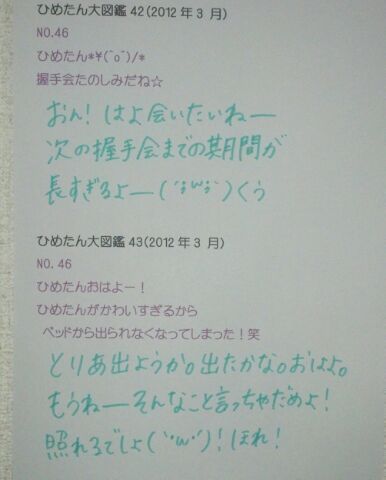 ひめたん大図鑑 42(2012 年 3 月)
NO.46
ひめたん*¥(^o^)/*
握手会たのしみだね☆
おん! はよ会いたいねー
次の握手会までの期間が
長すぎるよー(´;ω;`)くぅ
ひめたん大図鑑 43(2012 年 3 月)
NO.46
ひめたんおはよー!
ひめたんがかわいすぎるから
ベッドから出られなくなってしまった!笑
とりあ出ようか。出たかな。おはよ。
もうねーそんなこと言っちゃだめよ!
照れるでしょ(`・ω・´)!ほれ!